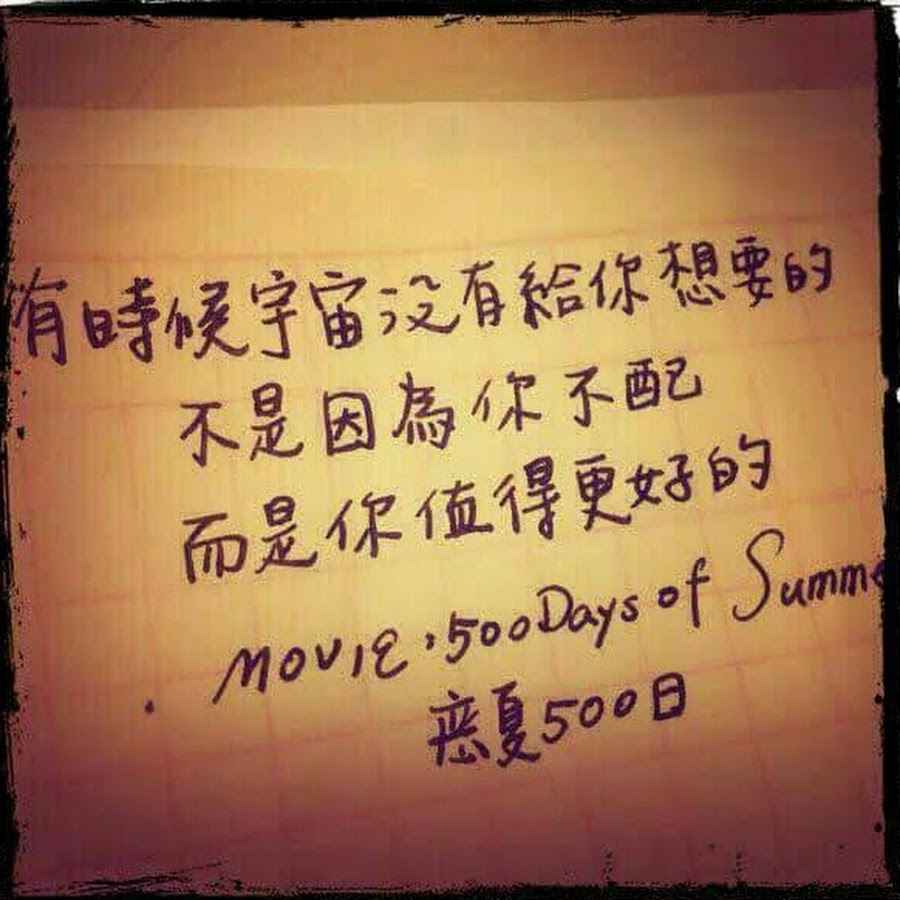 有時候宇宙沒有給你想要的
不是因為你不配
而是你值得更好的
MOVIE:500Days of Summe
恋夏500日